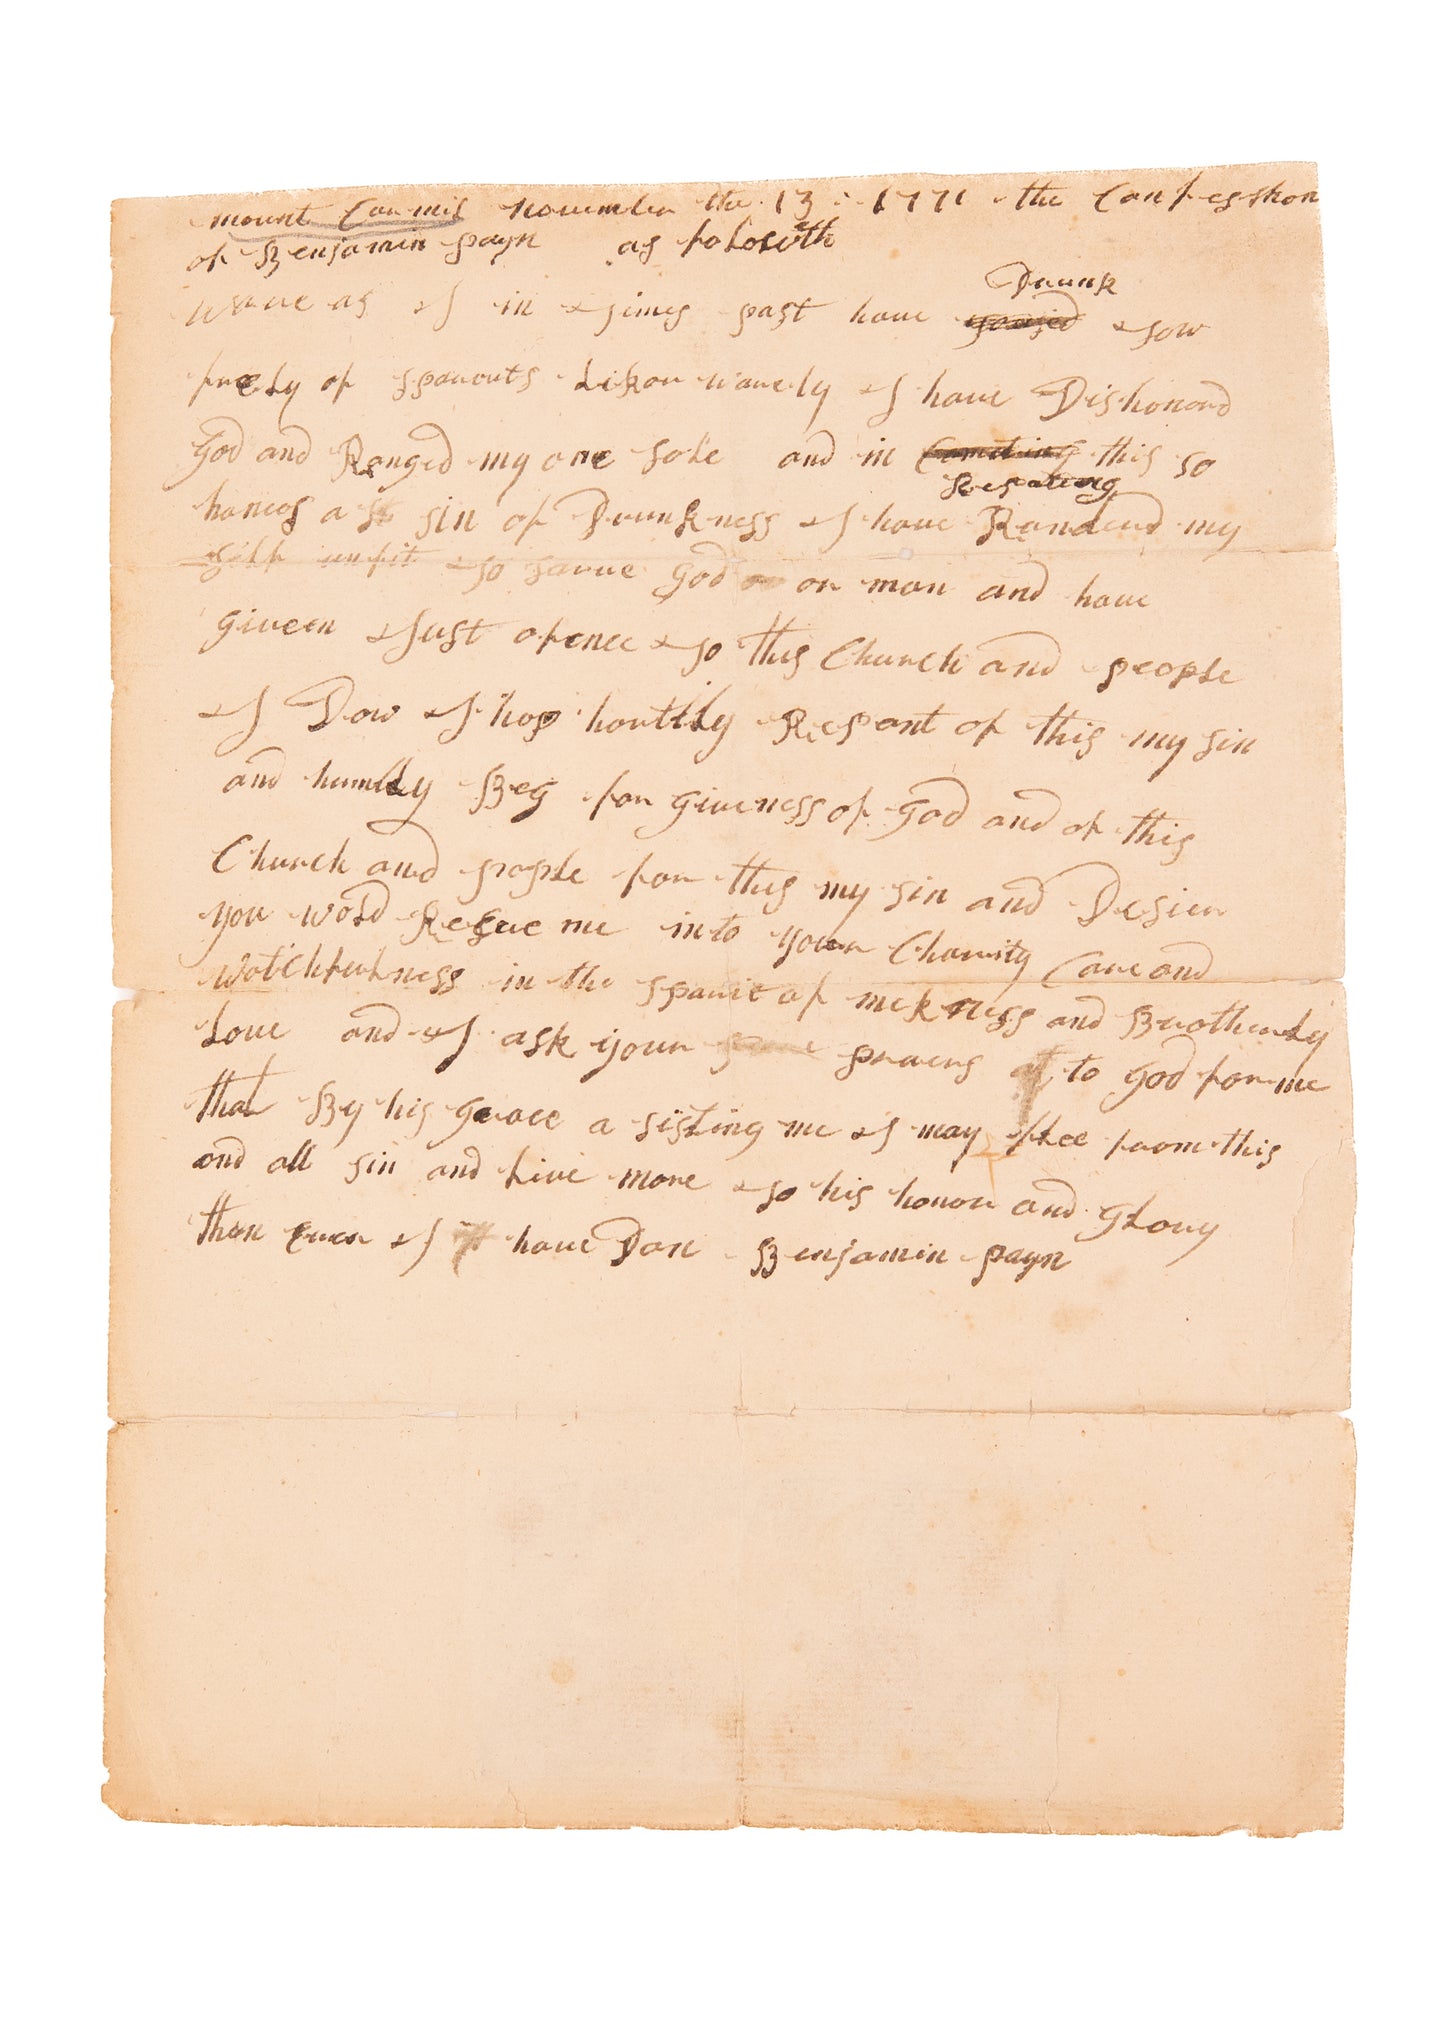 mount Carmil november the 13 : 1771 the Confesshon
of Benjamin payn as foloweth
Drunk
wareas I in times past have tow
frely of sparouts Likor warely I have Dishonord
God and Ronged my one sole and in this so
Repating
haneos a sin of Drunkness I have Randerd my
self unfit to sarve God or man and have
giveen Just ofence to this Church and people
I Dow I hop hartily Repant of this my sin
and humbly Beg for giveness of God and of this
Church and people for this my sin and Desier
you wold Reseve me into your Charity Care and
Watchfulness in the sparit of mekness and Brotherly
Love and I ask your praers to God for me
that By his Grace a sisting me I may flee from this
and all sin and Live more to his honor and GLory
than Ever I have Don Benjamin payn